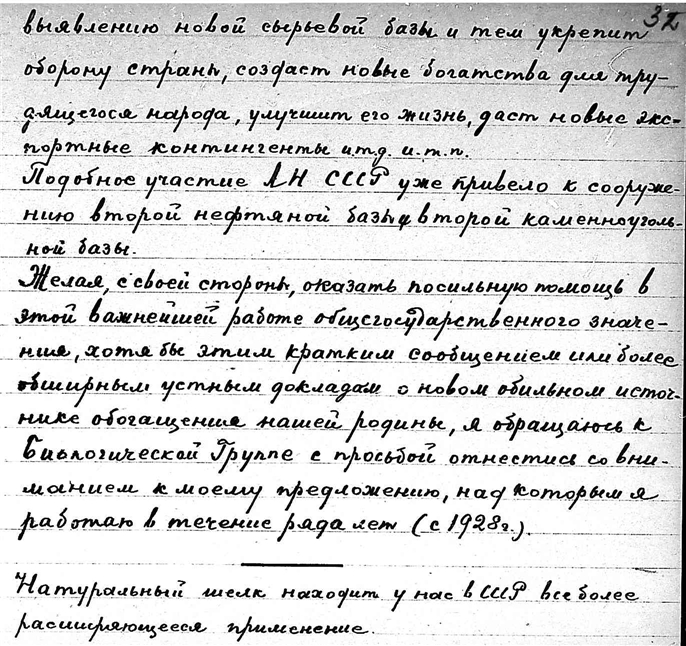 32
выявлению новой сырьевой базы и тем укрепит
оборону страны, создаст новые богатства для тру-
дящегося народа, улучшит его жизнь, даст новые экс-
портные контингенты и т.д. и.т.п.
Подобное участие АН СССР уже привело к сооруже-
нию второй нефтяной базы и второй каменноуголь-
ной базы.
Желая, с своей стороны, оказать посильную помощь в
этой важнейшей работе общегосударственного значе-
ния, хотя бы этим кратким сообщением или более
обширным устным докладам о новом обильном источ-
нике обогащения нашей родины, я обращаюсь к
Биологической Группе с просьбой отнестись со вни-
манием к моему предложению, над которым я
работаю в течение ряда лет (с 1928г.).
Натуральный шелк находит у нас в СССР все более
расширяющееся применение.